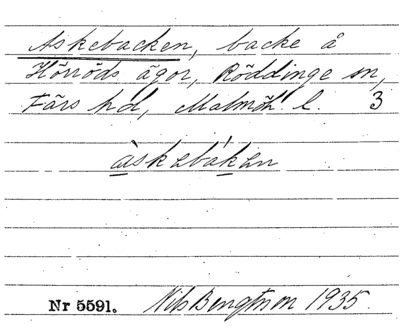 Askebacken, backe å
Hörröds ägor, Röddinge sn,
Färs hd, Malmöh. l. 3
àskebáken
Nr 5591. Nils Bengtsson 1935.